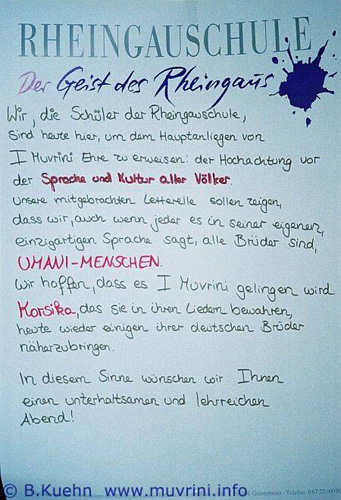 RHEINGAUSCHULE
Der Geist des Rheingaus
Wir, die Schüler der Rheingauschule,
sind heute hier, um dem Hauptanliegen von
I Muvrini Ehre zu erweisen: der Hochachtung vor
der Sprache und Kultur aller Völker.
Unsere mitgebrachten Letterelle sollen zeigen,
dass wir, auch wenn jeder es in seiner eigenen,
einzigartigen Sprache sagt, alle Brüder sind,
UMANI-MENSCHEN.
Wir hoffen, dass es I Muvrini gelingen wird
Korsika, das sie in ihren Liedern bewahren,
heute wieder einigen ihrer deutschen Brüder
näherzubringen.
In diesem Sinne wünschen wir Ihnen
einen unterhaltsamen und lehrreichen
Abend!
© B.Kuehn www.muvrini.info